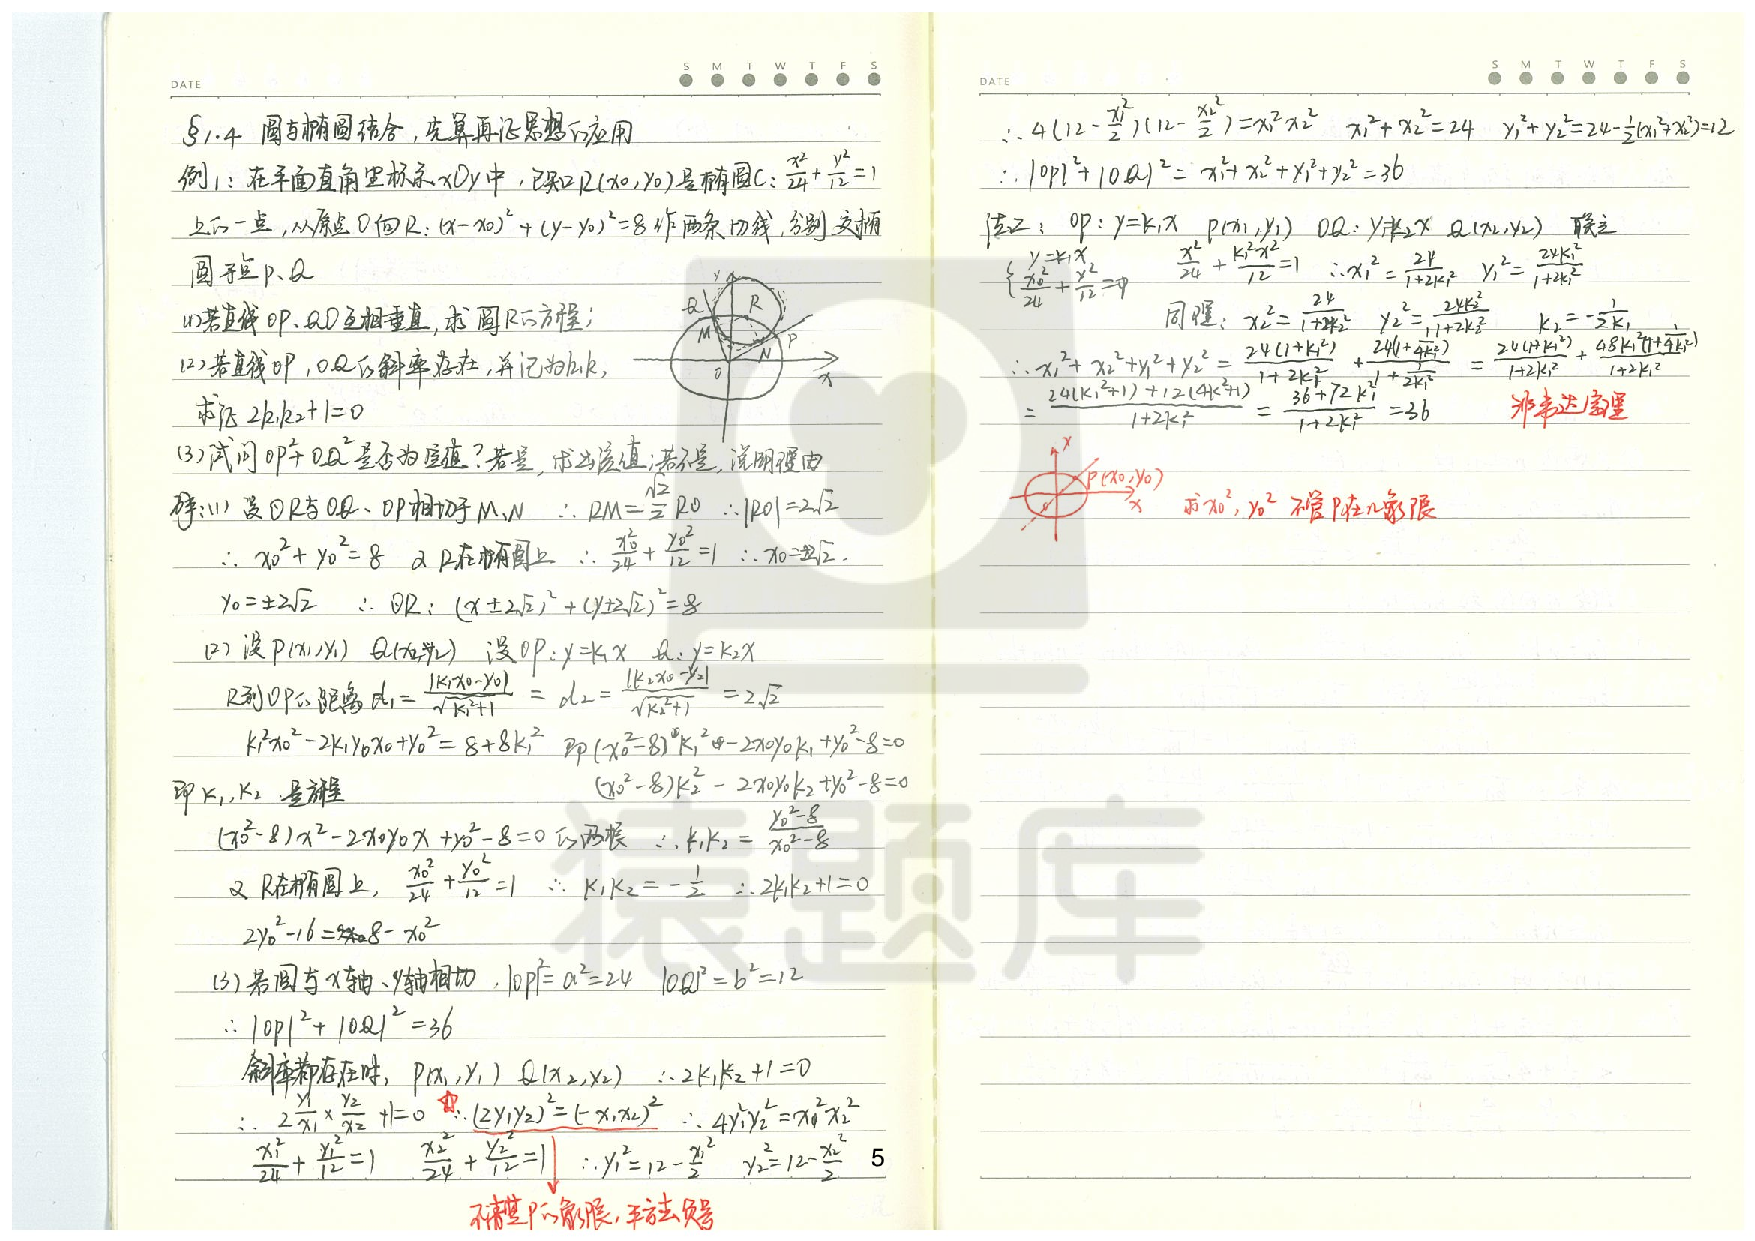 DATE
S M T W T F S
§1.4 圆与椭圆结合,先算再证思想的应用
例1:在平面直角坐标系xOy中,已知R(x0,y0)是椭圆C:x²/24+y²/12=1
上的一点,从原点O向R:(x-x0)²+(y-y0)²=8作两条切线,分别交椭
圆于点P、Q
(1)若直线OP、QO互相垂直,求圆R的方程;
(2)若直线OP,OQ的斜率存在,并记为k1,k2
求证2k1k2+1=0
(3)试问OP²+OQ²是否为定值?若是,求出该值;若不是,说明理由
y Q R M N P O x
解:(1)设⊙R与OQ、OP相切于M、N ∴RM=√2/2 RO ∴|RO|=2√2
∴x0²+y0²=8 又R在椭圆上 ∴x0²/24+y0²/12=1 ∴x0=±2√2.
y0=±2√2 ∴⊙R:(x±2√2)²+(y±2√2)²=8
(2)设P(x1,y1) Q(x2,y2) 设OP:y=k1x Q:y=k2x
R到OP的距离d1=|k1x0-y0|/√(k1²+1)=d2=|k2x0-y2|/√(k2²+1)=2√2
k1²x0²-2k1y0x0+y0²=8+8k1² 即(x0²-8)k1²-2x0y0k1+y0²-8=0
(x0²-8)k2²-2x0y0k2+y0²-8=0
即k1,k2是方程
(x0²-8)x²-2x0y0x+y0²-8=0的两根 ∴k1k2=(y0²-8)/(x0²-8)
又R在椭圆上,x0²/24+y0²/12=1 ∴k1k2=-1/2 ∴2k1k2+1=0
2y0²-16=8-x0²
(3)若圆与x轴、y轴相切,|OP|²=a²=24 |OQ|²=b²=12
∴|OP|²+|OQ|²=36
斜率都存在时,P(x1,y1) Q(x2,y2) ∴2k1k2+1=0
∴2 y1/x1 × y2/x2 +1=0 ☆∴(2y1y2)²=(-x1x2)² ∴4y1²y2²=x1²x2²
x1²/24+y1²/12=1 x2²/24+y2²/12=1 ∴y1²=12-x1²/2 y2²=12-x2²/2
5
不清楚P的象限,平方去负号
DATE
S M T W T F S
∴4(12-x1²/2)(12-x2²/2)=x1²x2² x1²+x2²=24 y1²+y2²=24-1/2(x1²+x2²)=12
∴|OP|²+|OQ|²=x1²+x2²+y1²+y2²=36
法二:OP:y=k1x P(x1,y1) OQ:y=k2x Q(x2,y2) 联立
{y=k1x x0²/24+y²/12=1 x²/24+k1²x²/12=1 ∴x1²=24/(1+2k1²) y1²=24k1²/(1+2k1²)
同理:x2²=24/(1+2k2²) y2²=24k2²/(1+2k2²) k2=-1/(2k1)
∴x1²+x2²+y1²+y2²=24(1+k1²)/(1+2k1²)+24(1+1/(4k1²))/(1+1/(2k1²))=24(1+k1²)/(1+2k1²)+48k1²(1+1/(4k1²))/(1+2k1²)
=(24(k1²+1)+12(4k1²+1))/(1+2k1²)=(36+72k1²)/(1+2k1²)=36
x P(x0,y0) x
求x0²,y0² 不管P在几象限
猿题库